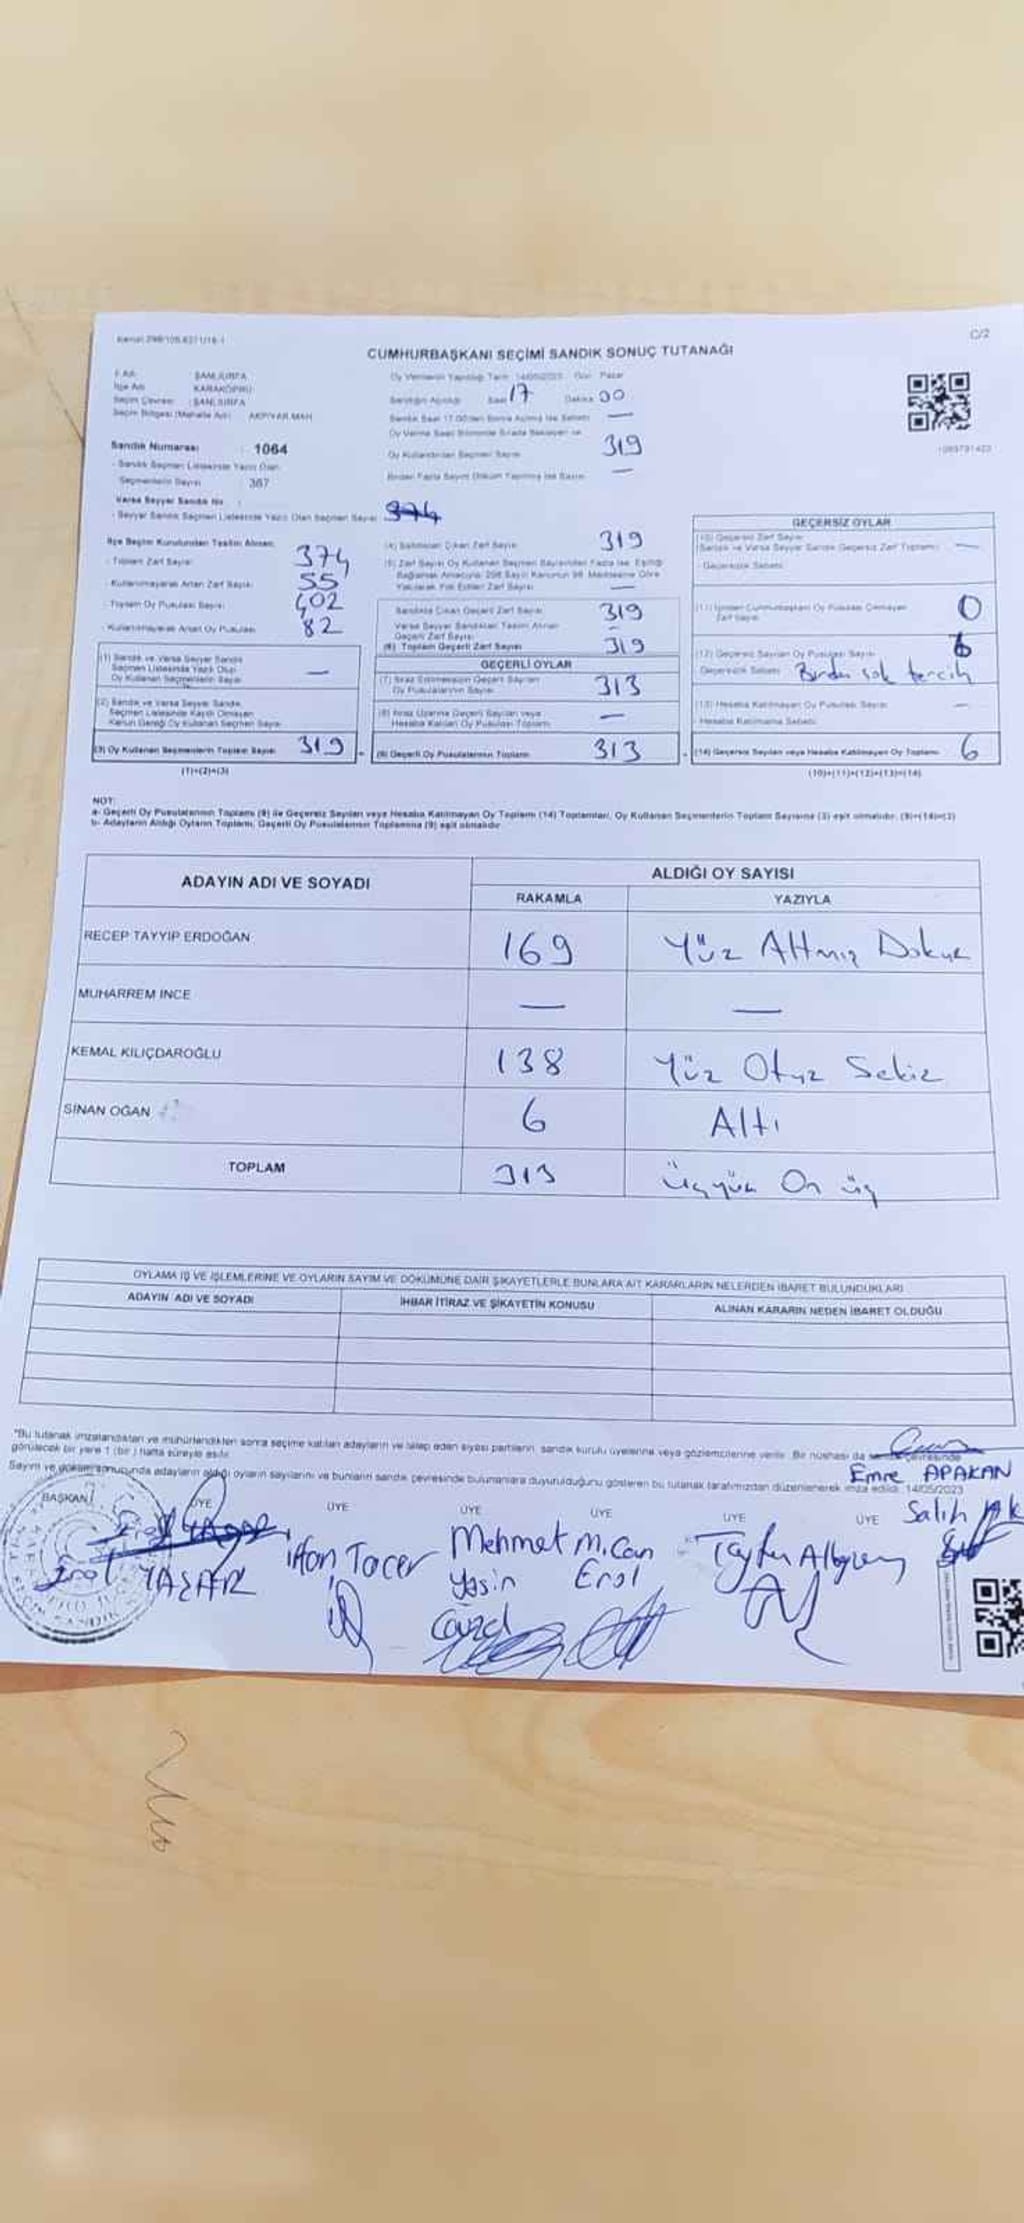 C/2
CUMHURBAŞKANI SEÇİMİ SANDIK SONUÇ TUTANAĞI
İl Adı ŞANLIURFA
İlçe Adı KARAKÖPRÜ
Seçim Çevresi : ŞANLIURFA
Seçim Bölgesi (Mahalle Adı) AKPIYAR MAH
Sandık Numarası : 1064
- Sandık Seçmen Listesinde Yazılı Olan
Seçmenlerin Sayısı 367
Varsa Seyyar Sandık No :
- Seyyar Sandık Seçmen Listesinde Yazılı Olan Seçmen Sayısı 374
Oy Vermenin Yapıldığı Tarih : 14/05/2023 Gün : Pazar
Sandığın Açıldığı Saat 17 Dakika 00
Sandık Saat 17.00'den Sonra Açılmış İse Sebebi —
Oy Verme Saati Bitiminde Sırada Bekleyen ve
Oy Kullandırılan Seçmen Sayısı 319
Birden Fazla Sayım Döküm Yapılmış İse Sayısı —
İlçe Seçim Kurulundan Teslim Alınan;
- Toplam Zarf Sayısı 374
- Kullanılmayarak Artan Zarf Sayısı 55
- Toplam Oy Pusulası Sayısı 402
- Kullanılmayarak Artan Oy Pusulası 82
(1) Sandık ve Varsa Seyyar Sandık
Seçmen Listesinde Yazılı Olup
Oy Kullanan Seçmenlerin Sayısı —
(2) Sandık ve Varsa Seyyar Sandık
Seçmen Listesinde Kayıtlı Olmayan
Kanun Gereği Oy Kullanan Seçmen Sayısı
(3) Oy Kullanan Seçmenlerin Toplam Sayısı 319
(1)+(2)=(3)
(4) Sandıktan Çıkan Zarf Sayısı 319
(5) Zarf Sayısı Oy Kullanan Seçmen Sayısından Fazla İse, Eşitliği
Sağlamak Amacıyla 298 Sayılı Kanunun 98. Maddesine Göre
Yakılarak Yok Edilen Zarf Sayısı —
Sandıkta Çıkan Geçerli Zarf Sayısı 319
Varsa Seyyar Sandıktan Teslim Alınan
Geçerli Zarf Sayısı —
(6) Toplam Geçerli Zarf Sayısı 319
GEÇERLİ OYLAR
(7) İtiraz Edilmeksizin Geçerli Sayılan
Oy Pusulalarının Sayısı 313
(8) İtiraz Üzerine Geçerli Sayılan veya
Hesaba Katılan Oy Pusulası Toplamı —
(9) Geçerli Oy Pusulalarının Toplamı 313
GEÇERSİZ OYLAR
(10) Geçersiz Zarf Sayısı
(Sandık ve Varsa Seyyar Sandık Geçersiz Zarf Toplamı) —
- Geçersizlik Sebebi:
(11) İçinden Cumhurbaşkanı Oy Pusulası Çıkmayan
Zarf Sayısı 0
(12) Geçersiz Sayılan Oy Pusulası Sayısı 6
Geçersizlik Sebebi Birden çok tercih
(13) Hesaba Katılmayan Oy Pusulası Sayısı —
- Hesaba Katılmama Sebebi
(14) Geçersiz Sayılan veya Hesaba Katılmayan Oy Toplamı 6
(10)+(11)+(12)+(13)=(14)
NOT:
a- Geçerli Oy Pusulalarının Toplamı (9) ile Geçersiz Sayılan veya Hesaba Katılmayan Oy Toplamı (14) Toplamları, Oy Kullanan Seçmenlerin Toplam Sayısına (3) eşit olmalıdır. (9)+(14)=(3)
b- Adayların Aldığı Oyların Toplamı, Geçerli Oy Pusulalarının Toplamına (9) eşit olmalıdır.
ADAYIN ADI VE SOYADI ALDIĞI OY SAYISI
RAKAMLA YAZIYLA
RECEP TAYYİP ERDOĞAN 169 Yüz Altmış Dokuz
MUHARREM İNCE — —
KEMAL KILIÇDAROĞLU 138 Yüz Otuz Sekiz
SİNAN OĞAN 6 Altı
TOPLAM 313 Üçyüz On üç
OYLAMA İŞ VE İŞLEMLERİNE VE OYLARIN SAYIM VE DÖKÜMÜNE DAİR ŞİKAYETLERLE BUNLARA AİT KARARLARIN NELERDEN İBARET BULUNDUKLARI
ADAYIN ADI VE SOYADI İHBAR İTİRAZ VE ŞİKAYETİN KONUSU ALINAN KARARIN NEDEN İBARET OLDUĞU
"Bu tutanak imzalandıktan ve mühürlendikten sonra seçime katılan adayların ve talep eden siyasi partilerin, sandık kurulu üyelerine veya gözlemcilerine verilir. Bir nüshası da sandık çevresinde
görülecek bir yere 1 (bir) hafta süreyle asılır.
Sayım ve döküm sonucunda adayların aldığı oyların sayılarını ve bunların sandık çevresinde bulunanlara duyurulduğunu gösteren bu tutanak tarafımızdan düzenlenerek imza edildi. 14/05/2023
Emre APAKAN
BAŞKAN ÜYE ÜYE ÜYE ÜYE ÜYE ÜYE
Erol YAŞAR
İrfan Tacer
Mehmet Yasin Güzel
M.Can Erol
Salih